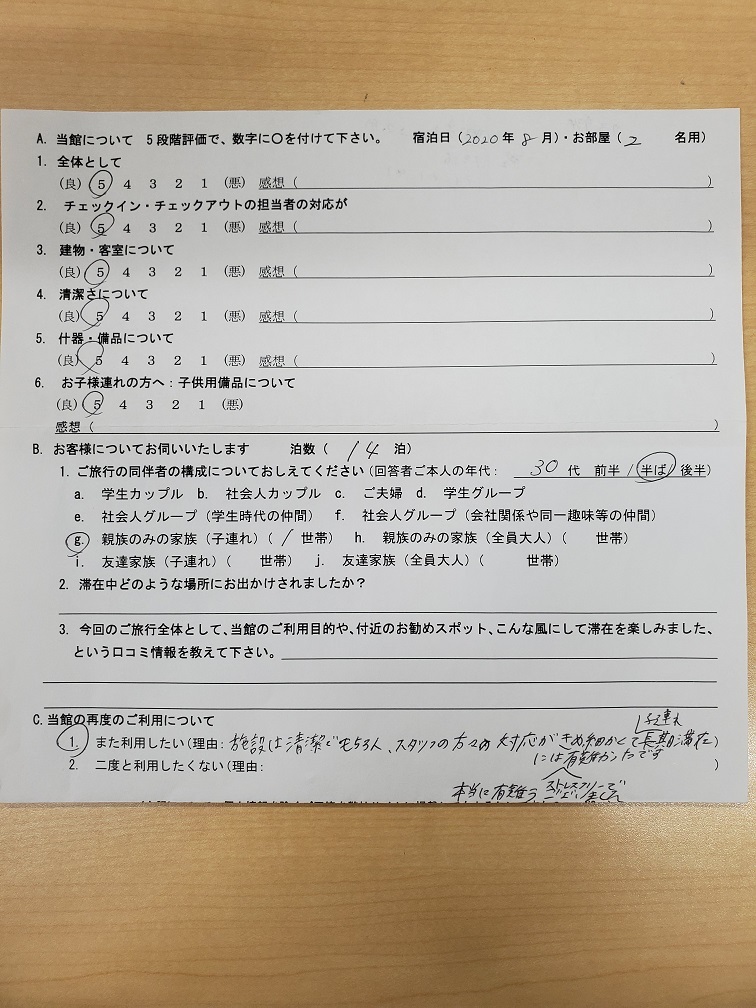 A. 当館について 5段階評価で、数字に〇を付けて下さい。 宿泊日(2020年8月)・お部屋(2 名用)
1. 全体として
(良) 5 4 3 2 1 (悪) 感想( )
2. チェックイン・チェックアウトの担当者の対応が
(良) 5 4 3 2 1 (悪) 感想( )
3. 建物・客室について
(良) 5 4 3 2 1 (悪) 感想( )
4. 清潔さについて
(良) 5 4 3 2 1 (悪) 感想( )
5. 什器・備品について
(良) 5 4 3 2 1 (悪) 感想( )
6. お子様連れの方へ:子供用備品について
(良) 5 4 3 2 1 (悪)
感想( )
B. お客様についてお伺いいたします 泊数( 14 泊)
1. ご旅行の同伴者の構成についておしえてください(回答者ご本人の年代: 30 代 前半/半ば/後半)
a. 学生カップル b. 社会人カップル c. ご夫婦 d. 学生グループ
e. 社会人グループ(学生時代の仲間) f. 社会人グループ(会社関係や同一趣味等の仲間)
g. 親族のみの家族(子連れ)( 1 世帯) h. 親族のみの家族(全員大人)( 世帯)
i. 友達家族(子連れ)( 世帯) j. 友達家族(全員大人)( 世帯)
2. 滞在中どのような場所にお出かけされましたか?
3. 今回のご旅行全体として、当館のご利用目的や、付近のお勧めスポット、こんな風にして滞在を楽しみました、
という口コミ情報を教えて下さい。
C.当館の再度のご利用について
子連れ
1. また利用したい(理由:施設は清潔でもちろん、スタッフの方々の対応がきめ細かくて長期滞在)
には有難かったです
2. 二度と利用したくない(理由: )
ストレスフリーで
本当に有難う